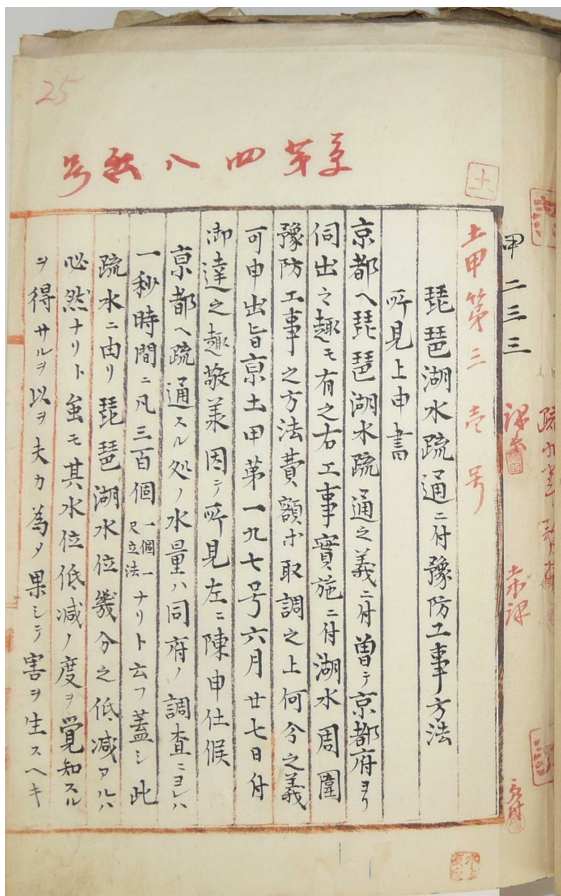 25
第四八
号
甲二三三
土甲第三壱号
土木課
琵琶湖水疏通ニ付豫防工事方法
所見上申書
京都ヘ琵琶湖水疏通之義ニ付曽テ京都府ヨリ
伺出之趣モ有之右工事實施ニ付湖水周圍
豫防工事之方法費額等取調之上何分之義
可申出旨京土甲第一九七号六月廿七日付
御達之趣敬羕因テ所見左ニ陳申仕候
京都ヘ疏通スル処ノ水量ハ同府ノ調査ニヨレハ
一秒時間ニ凡三百個一個一尺立法ナリト云フ蓋シ此
疏水ニ由リ琵琶湖水位幾分之低減アルハ
必然ナリト虽モ其水位低減ノ度ヲ覚知スル
ヲ得サルヲ以ヲ夫カ為メ果シテ害ヲ生スヘキ